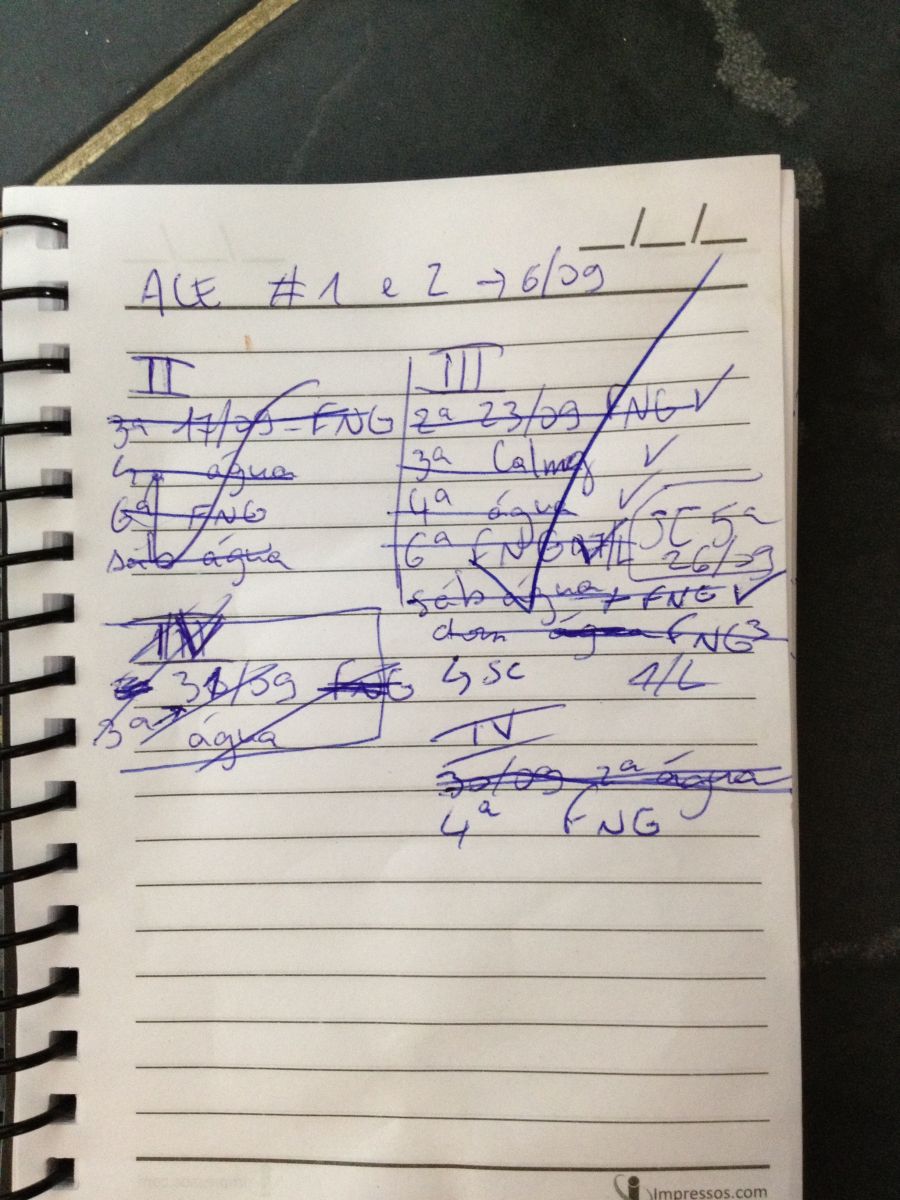 __/__/__
ALE #1 e 2 → 6/09
II
3ª 17/09 - FNG
água
6ª FNG
sáb água
III
2ª 23/09 FNG ✓
3ª Calmg ✓
4ª água ✓
6ª FNG 1/L
SC 5ª
26/09
sáb água + FNG ✓
dom água FNG
↳ SC 1/L
IV
31/09 FNG
3ª → água
IV
30/09 2ª água
4ª FNG
Impressos.com